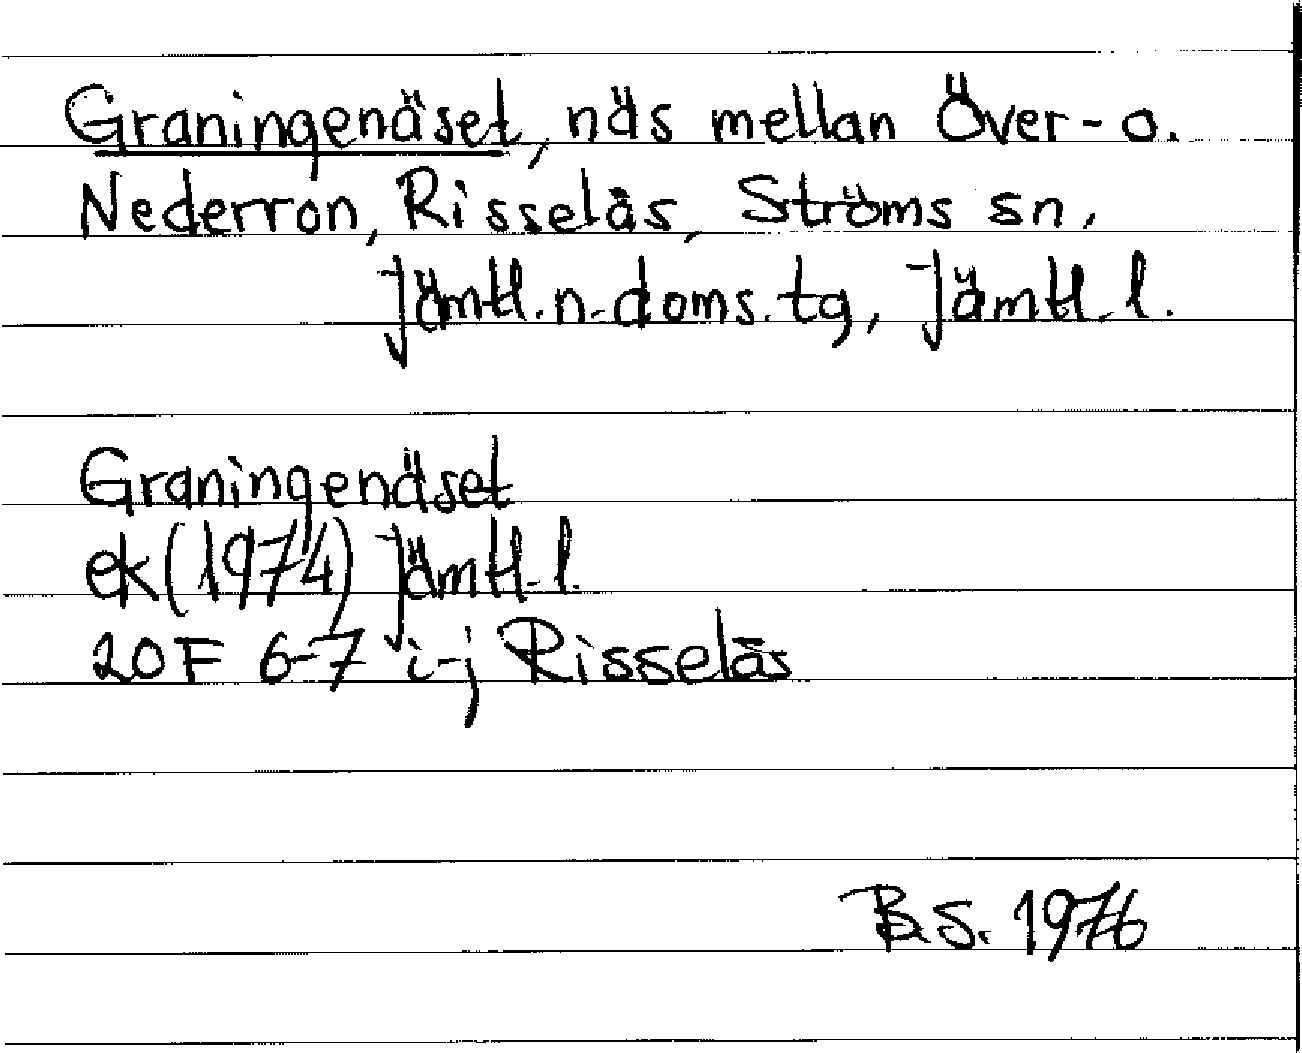 Graningenäset, näs mellan Över- o.
Nederron, Risselås, Ströms sn,
Jämtl. n. doms. tg, Jämtl. l.
Graningenäset
ek (1974) Jämtl. l.
20F 6-7 i-j Risselås
B.S. 1976